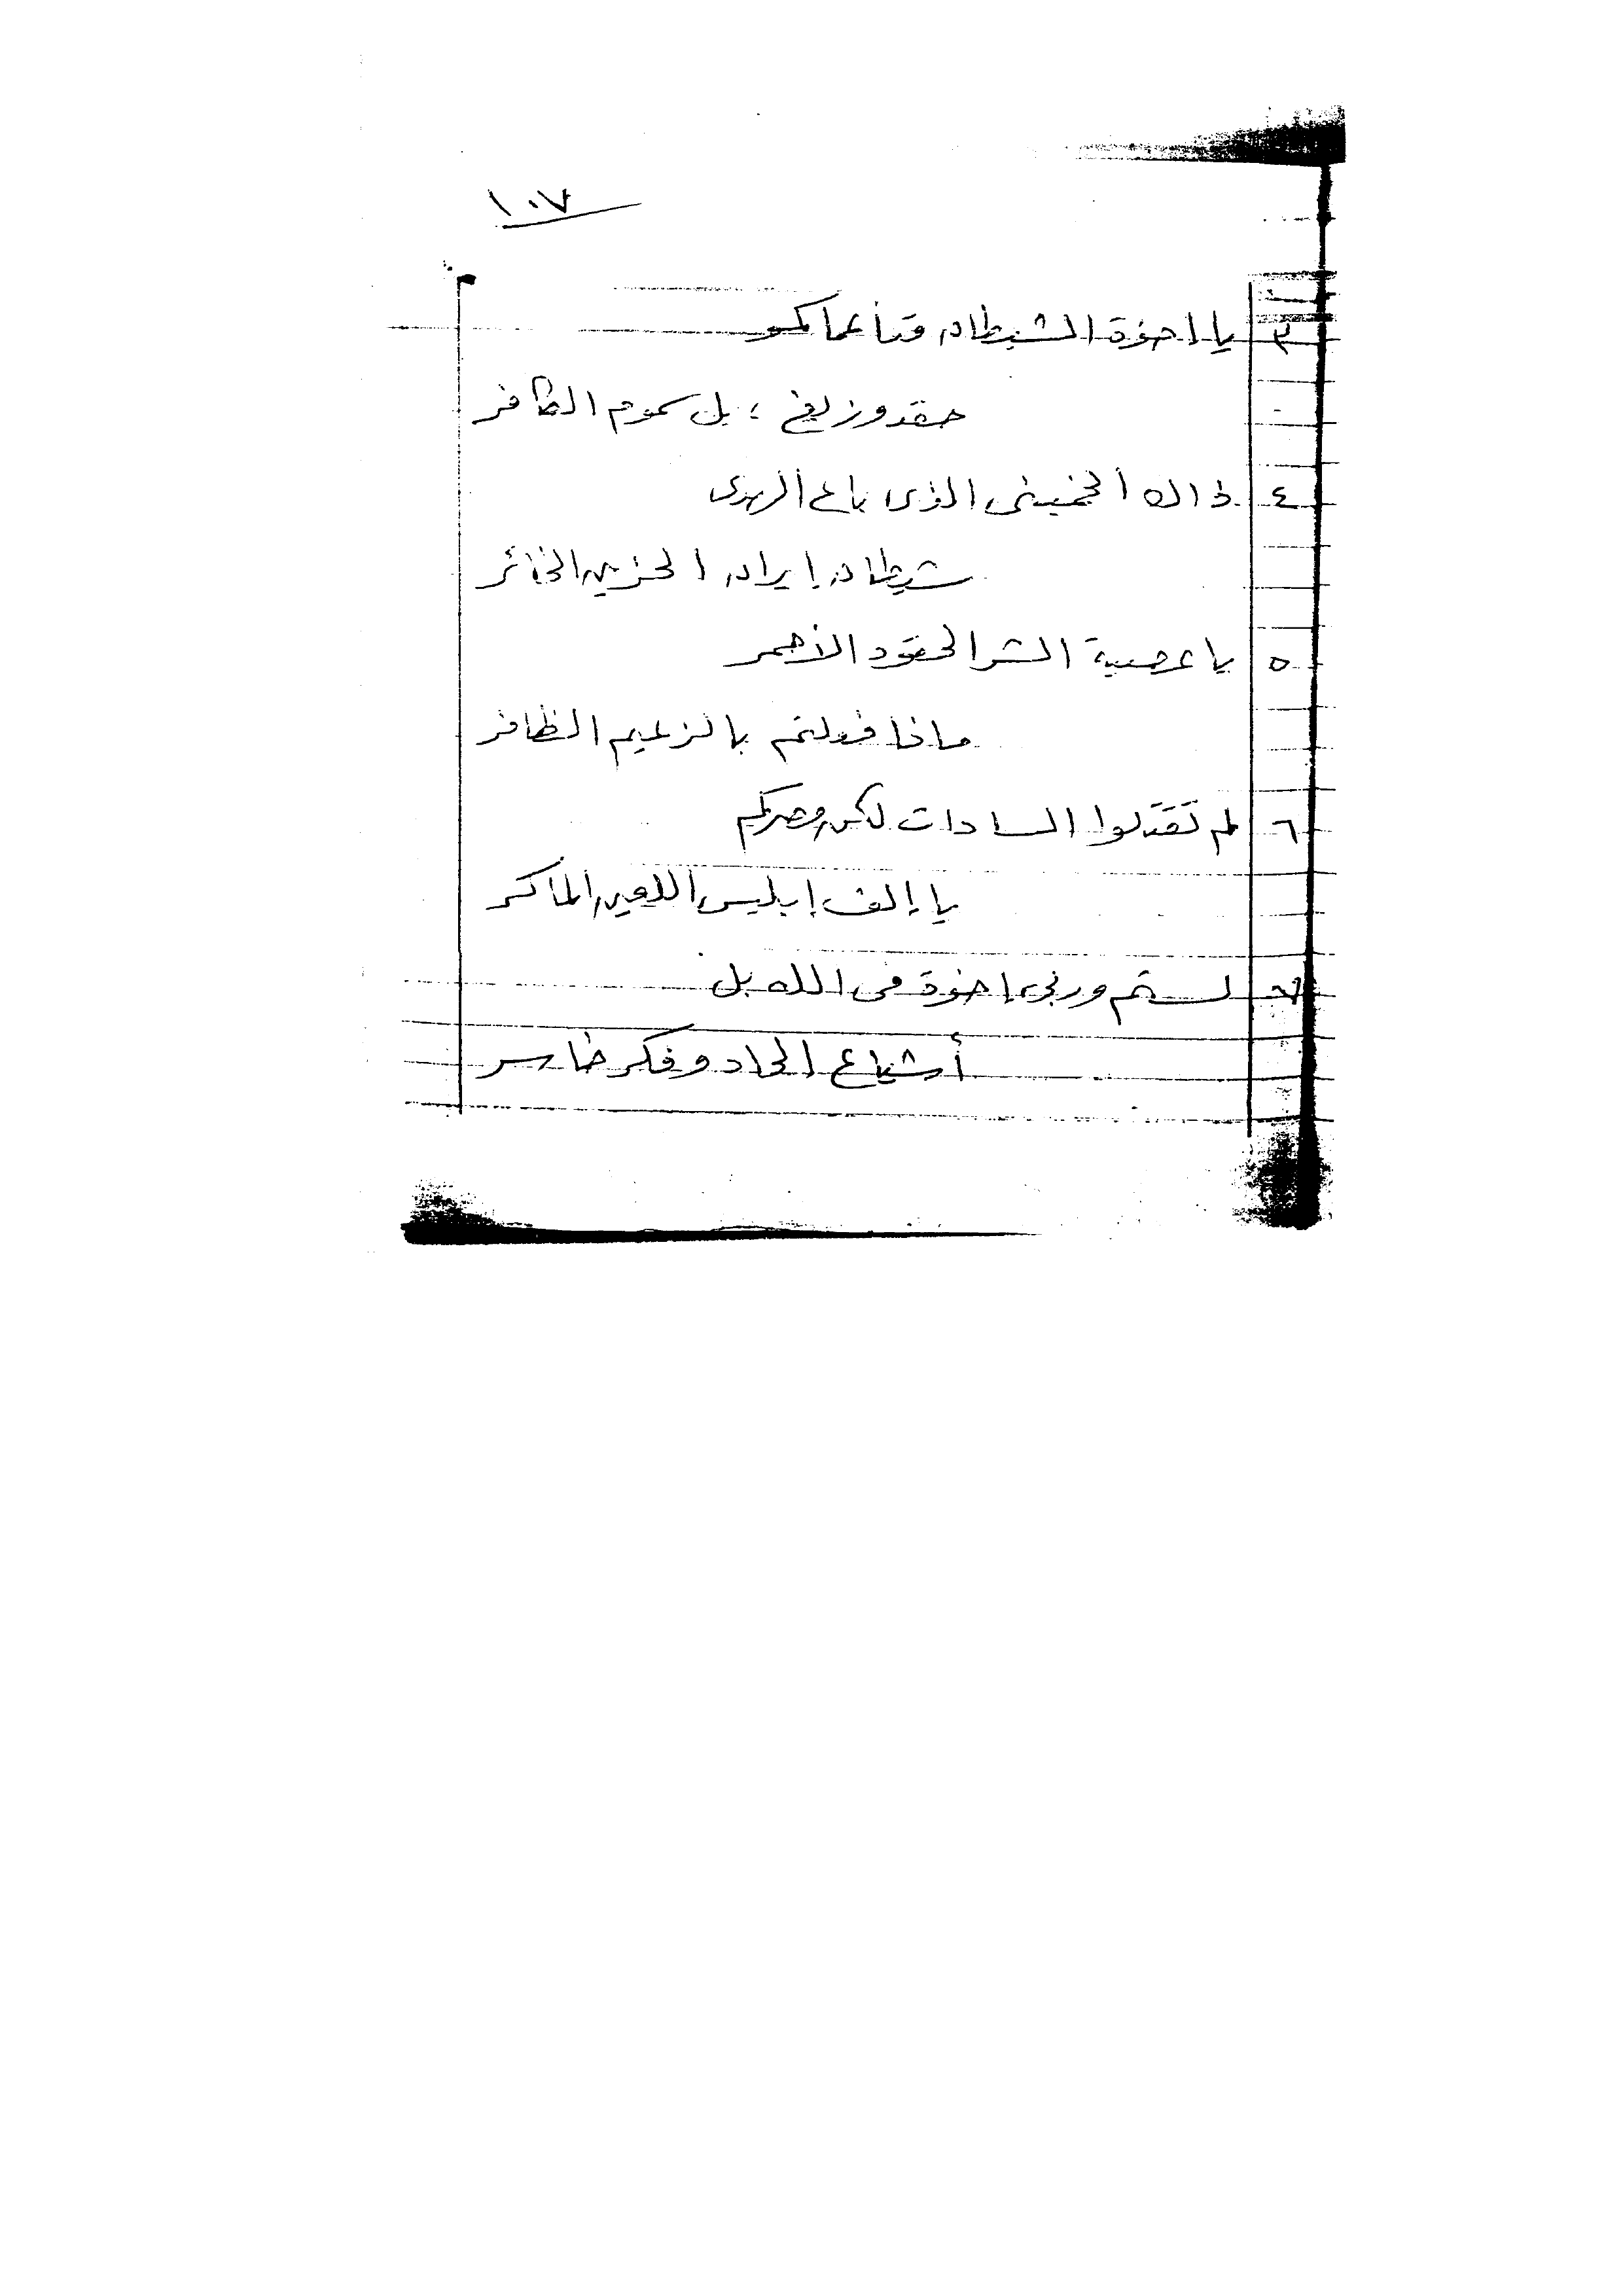 ١٠٧
٣ يا إخوة الشيطان قد أعماكمو
حقد وزيغ ؛ بل سموم الكافر
٤ ذاك الخمينى الذى باع الهدى
شيطان إيران الحزين الخائر
٥ يا عصبة الشر الحقود الأحمر
ماذا فعلتم بالزعيم الظافر
٦ لم تقتلوا السادات لكن مصركم
يا إلف إبليس اللعين الماكر
٧ لستم وربى إخوة فى الله بل
أشياع إلحاد وفكر خاسر